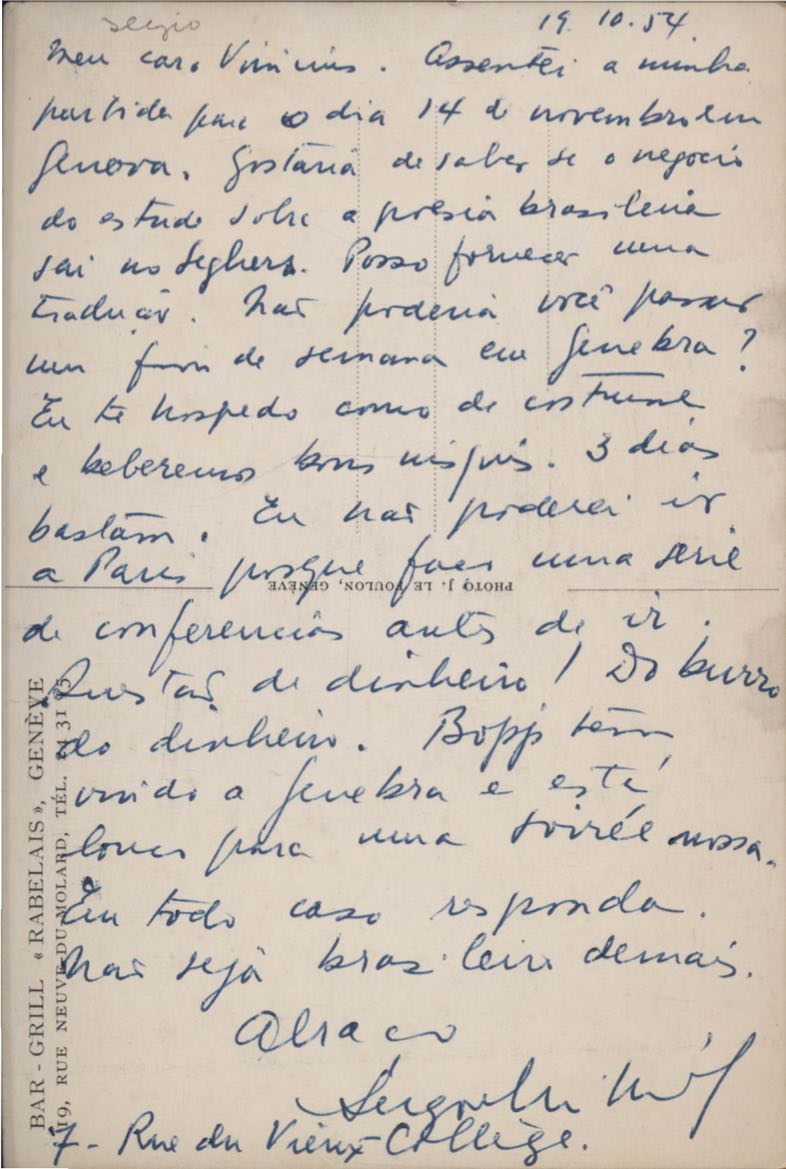 sergio
19.10.54
Meu caro Vinicius. Assentei a minha
partida para o dia 14 de novembro em
Genova. Gostaria de saber se o negocio
do estudo sobre a poesia brasileira
sai no Seghers. Posso fornecer uma
tradução. Não poderia você passar
um fim de semana em Genebra?
Eu te hospedo como de costume
e beberemos bons uisquis. 3 dias
bastam. Eu não poderei ir
a Paris porque faço uma serie
PHOTO J. LE POULON, GENÈVE
de conferencias antes de ir.
Questão de dinheiro! Do burro
do dinheiro. Bopp tem
vindo a Genebra e está
louco para uma soirée nossa.
Em todo caso responda.
Não seja brasileiro demais.
Abraço
7 - Rue du Vieux-Collège.
BAR - GRILL « RABELAIS », GENÈVE
19, RUE NEUVE-DU-MOLARD, TÉL. 31